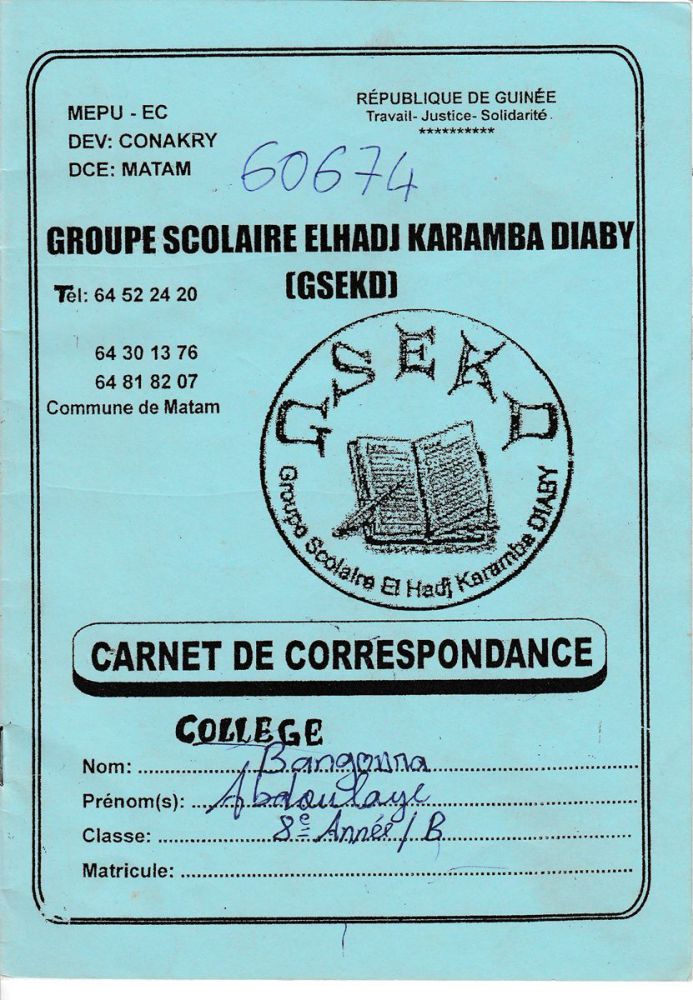 MEPU - EC
DEV: CONAKRY
DCE: MATAM
RÉPUBLIQUE DE GUINÉE
Travail- Justice- Solidarité
**********
60674
GROUPE SCOLAIRE ELHADJ KARAMBA DIABY
(GSEKD)
Tél: 64 52 24 20
64 30 13 76
64 81 82 07
Commune de Matam
GSEKD
Groupe Scolaire El Hadj Karamba DIABY
CARNET DE CORRESPONDANCE
COLLEGE
Nom: Bangoura
Prénom(s): Abdoulaye
Classe: 8e Année / B
Matricule: